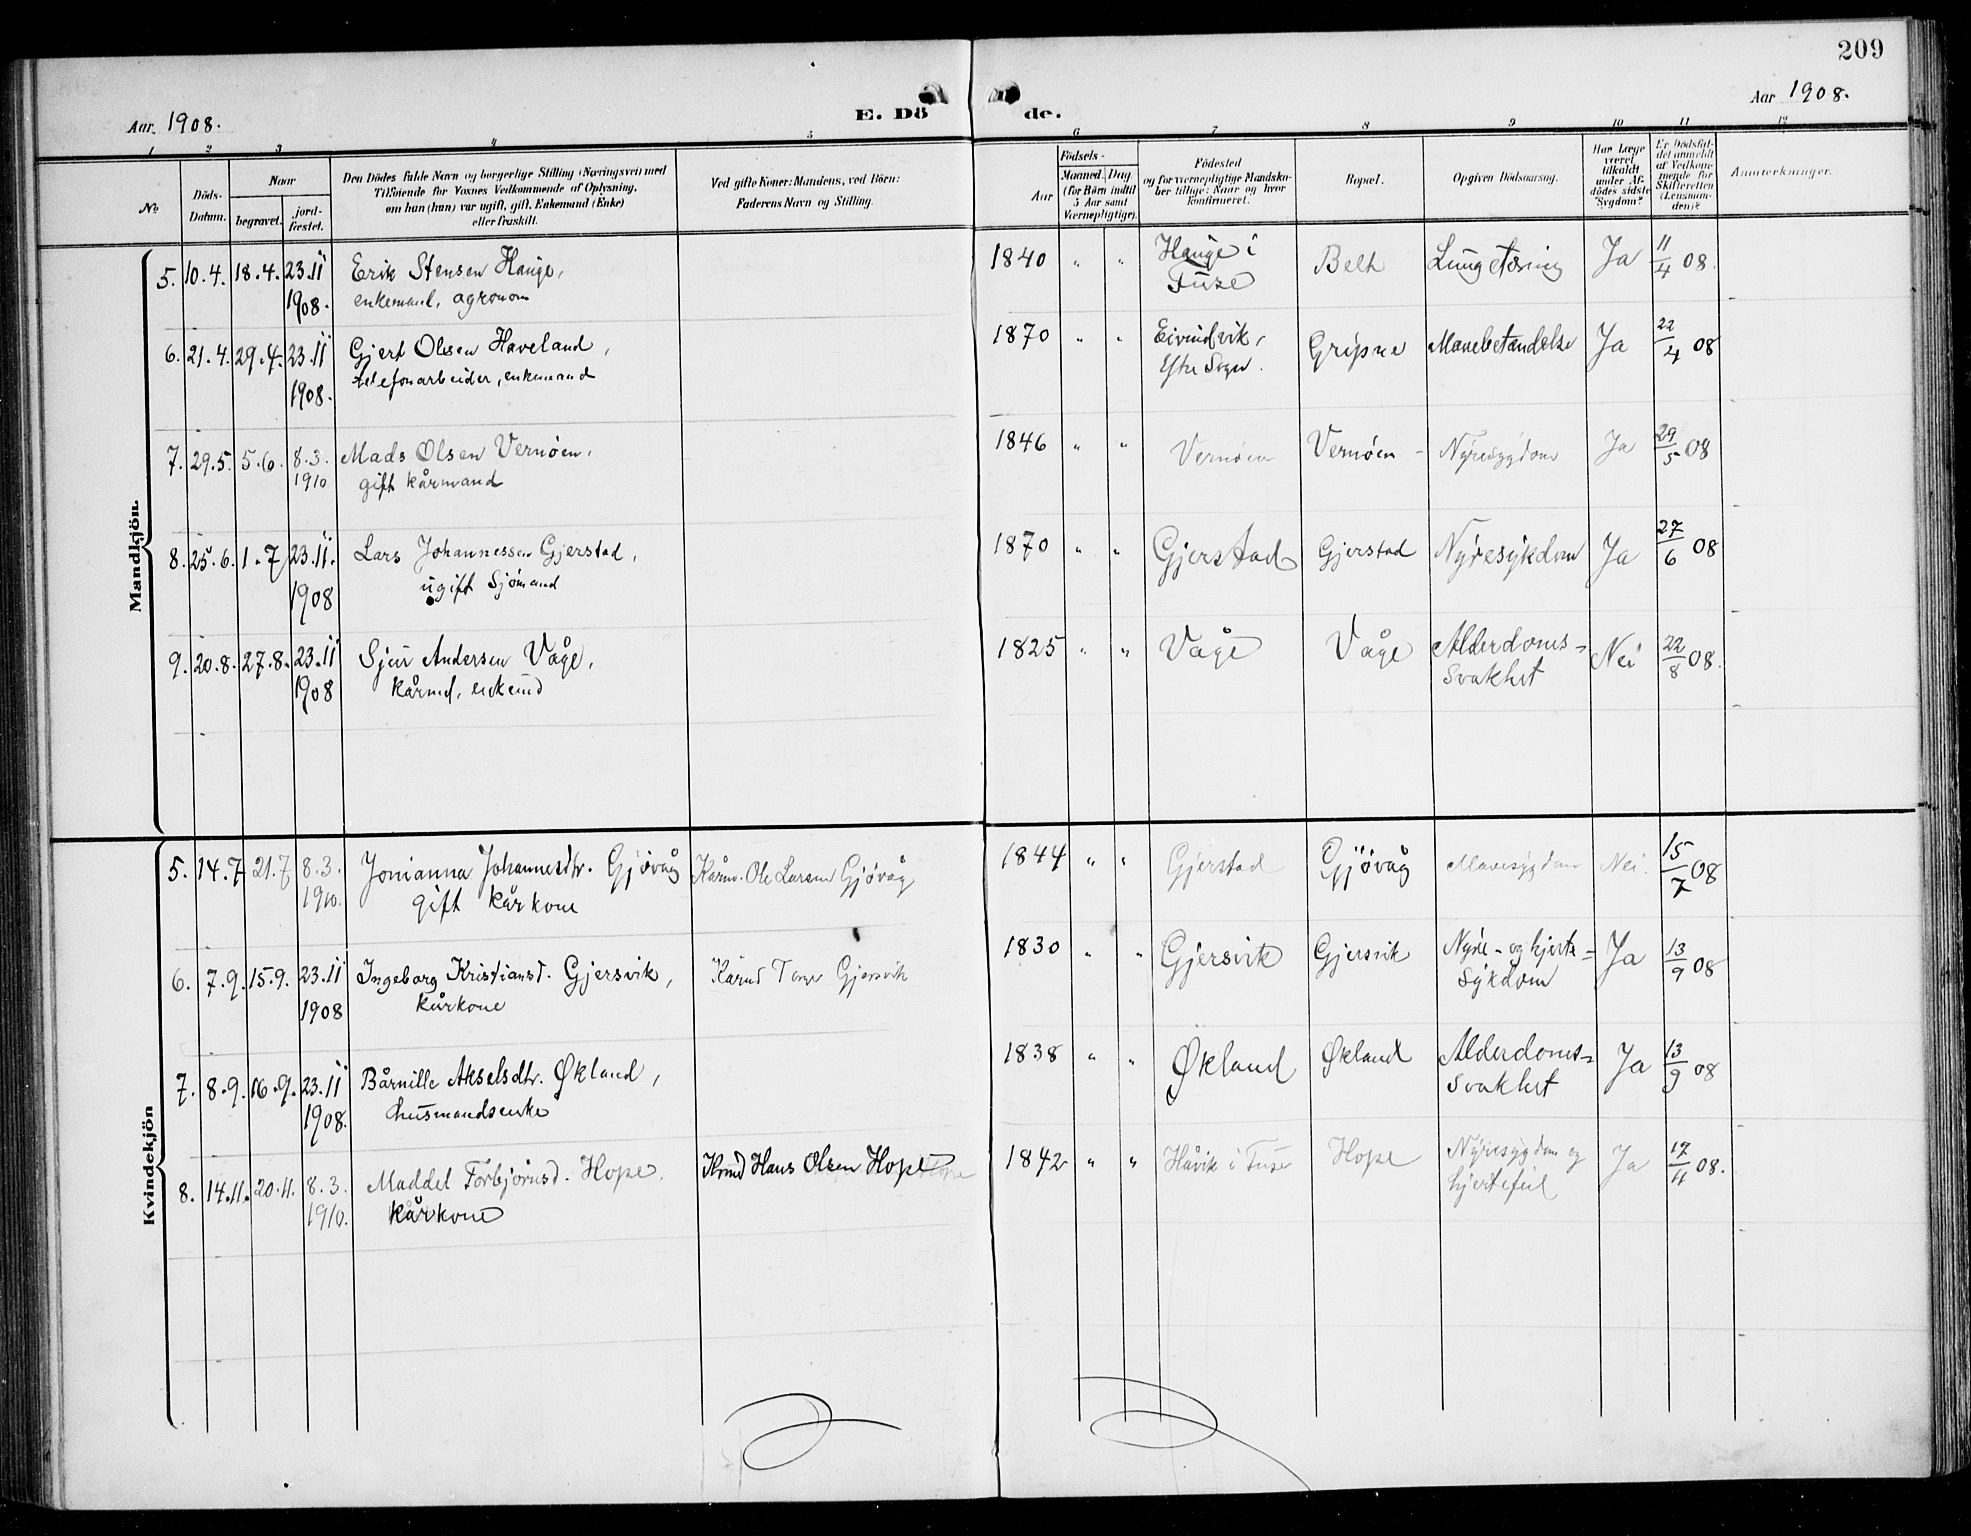 209
Aar 1908.
E. Dö
de.
Aar 1908.
1 2 3 4 5 6 7 8 9 10 11 12
No
Döds-Datum.
Naar
begravet.
jord-fæstet.
Den Dödes fulde Navn og borgerlige Stilling (Næringsvei) med
Tilföiende for Voxnes Vedkommende af Oplysning,
om han (hun) var ugift, gift, Enkemand (Enke)
eller fraskilt.
Ved gifte Koner: Mandens, ved Börn:
Faderens Navn og Stilling.
Födsels-
Aar
Maaned. Dag
(for Börn indtil
5 Aar samt
Værnepligtige).
Födested
og for værnepligtige Mandska-
ber tillige: Naar og hvor
konfirmeret.
Bopæl.
Opgiven Dödsaarsag.
Har Læge
været
tilkaldt
under Af-
dödes sidste
Sygdom?
Er Dödsfal-
det anmeldt
af Vedkom-
mende for
Skifteretten
(Lensman-
den)?
Anmærkninger.
Mandkjön.
5. 10.4. 18.4. 23.11 1908. Erik Stensen Hauge, 1840 " " Hauge i Belh Lungetæring Ja 11/4 08.
enkemand, agronom Fuse
6. 21.4. 29.4. 23.11 1908. Gjert Olsen Haveland, 1870 " " Eivindvik, Gripne Mavebetændelse Ja 22/4 08
telefonarbeider, enkemand Ytre Sogn.
7. 29.5. 5.6. 8.3. 1910 Mads Olsen Vernøen, 1846 " " Vernøen Vernøen Nyresygdom Ja 29/5 08
gift kårmand
8. 25.6. 1.7 23.11. 1908 Lars Johannessen Gjerstad, 1870 " " Gjerstad Gjerstad Nyresykdom Ja 27/6 08
ugift Sjømand
9. 20.8. 27.8. 23.11 1908 Sjur Andersen Våge, 1825 " " Våge Våge Alderdoms- Nei 22/8 08.
kårmd, enkemd svakhet
Kvindekjön
5. 14.7 21.7 8.3. 1910. Jonianna Johannesdtr. Gjøvåg Kårm. Ole Larsen Gjøvåg 1844 " " Gjerstad Gjøvåg Mavesygdom Nei. 15/7 08
gift kårkone
6. 7.9. 15.9. 23.11 1908 Ingeborg Kristiansd. Gjersvik, Kårmd Gjersvik 1830 " " Gjersvik Gjersvik Nyre- og hjerte- Ja 13/9 08
kårkone sykdom
7. 8.9. 16.9. 23.11 1908. Bårnille Akselsdtr. Økland, 1838 " " Økland Økland Alderdoms- Ja 13/9 08
husmandsenke svakhet
8. 14.11. 20.11. 8.3. 1910. Maddel Torbjørnsd. Hope, Hans Olsen Hope 1842 " " Håvik i Fuse Hope Nyresygdom og Ja 17/11 08.
kårkone hjertefeil